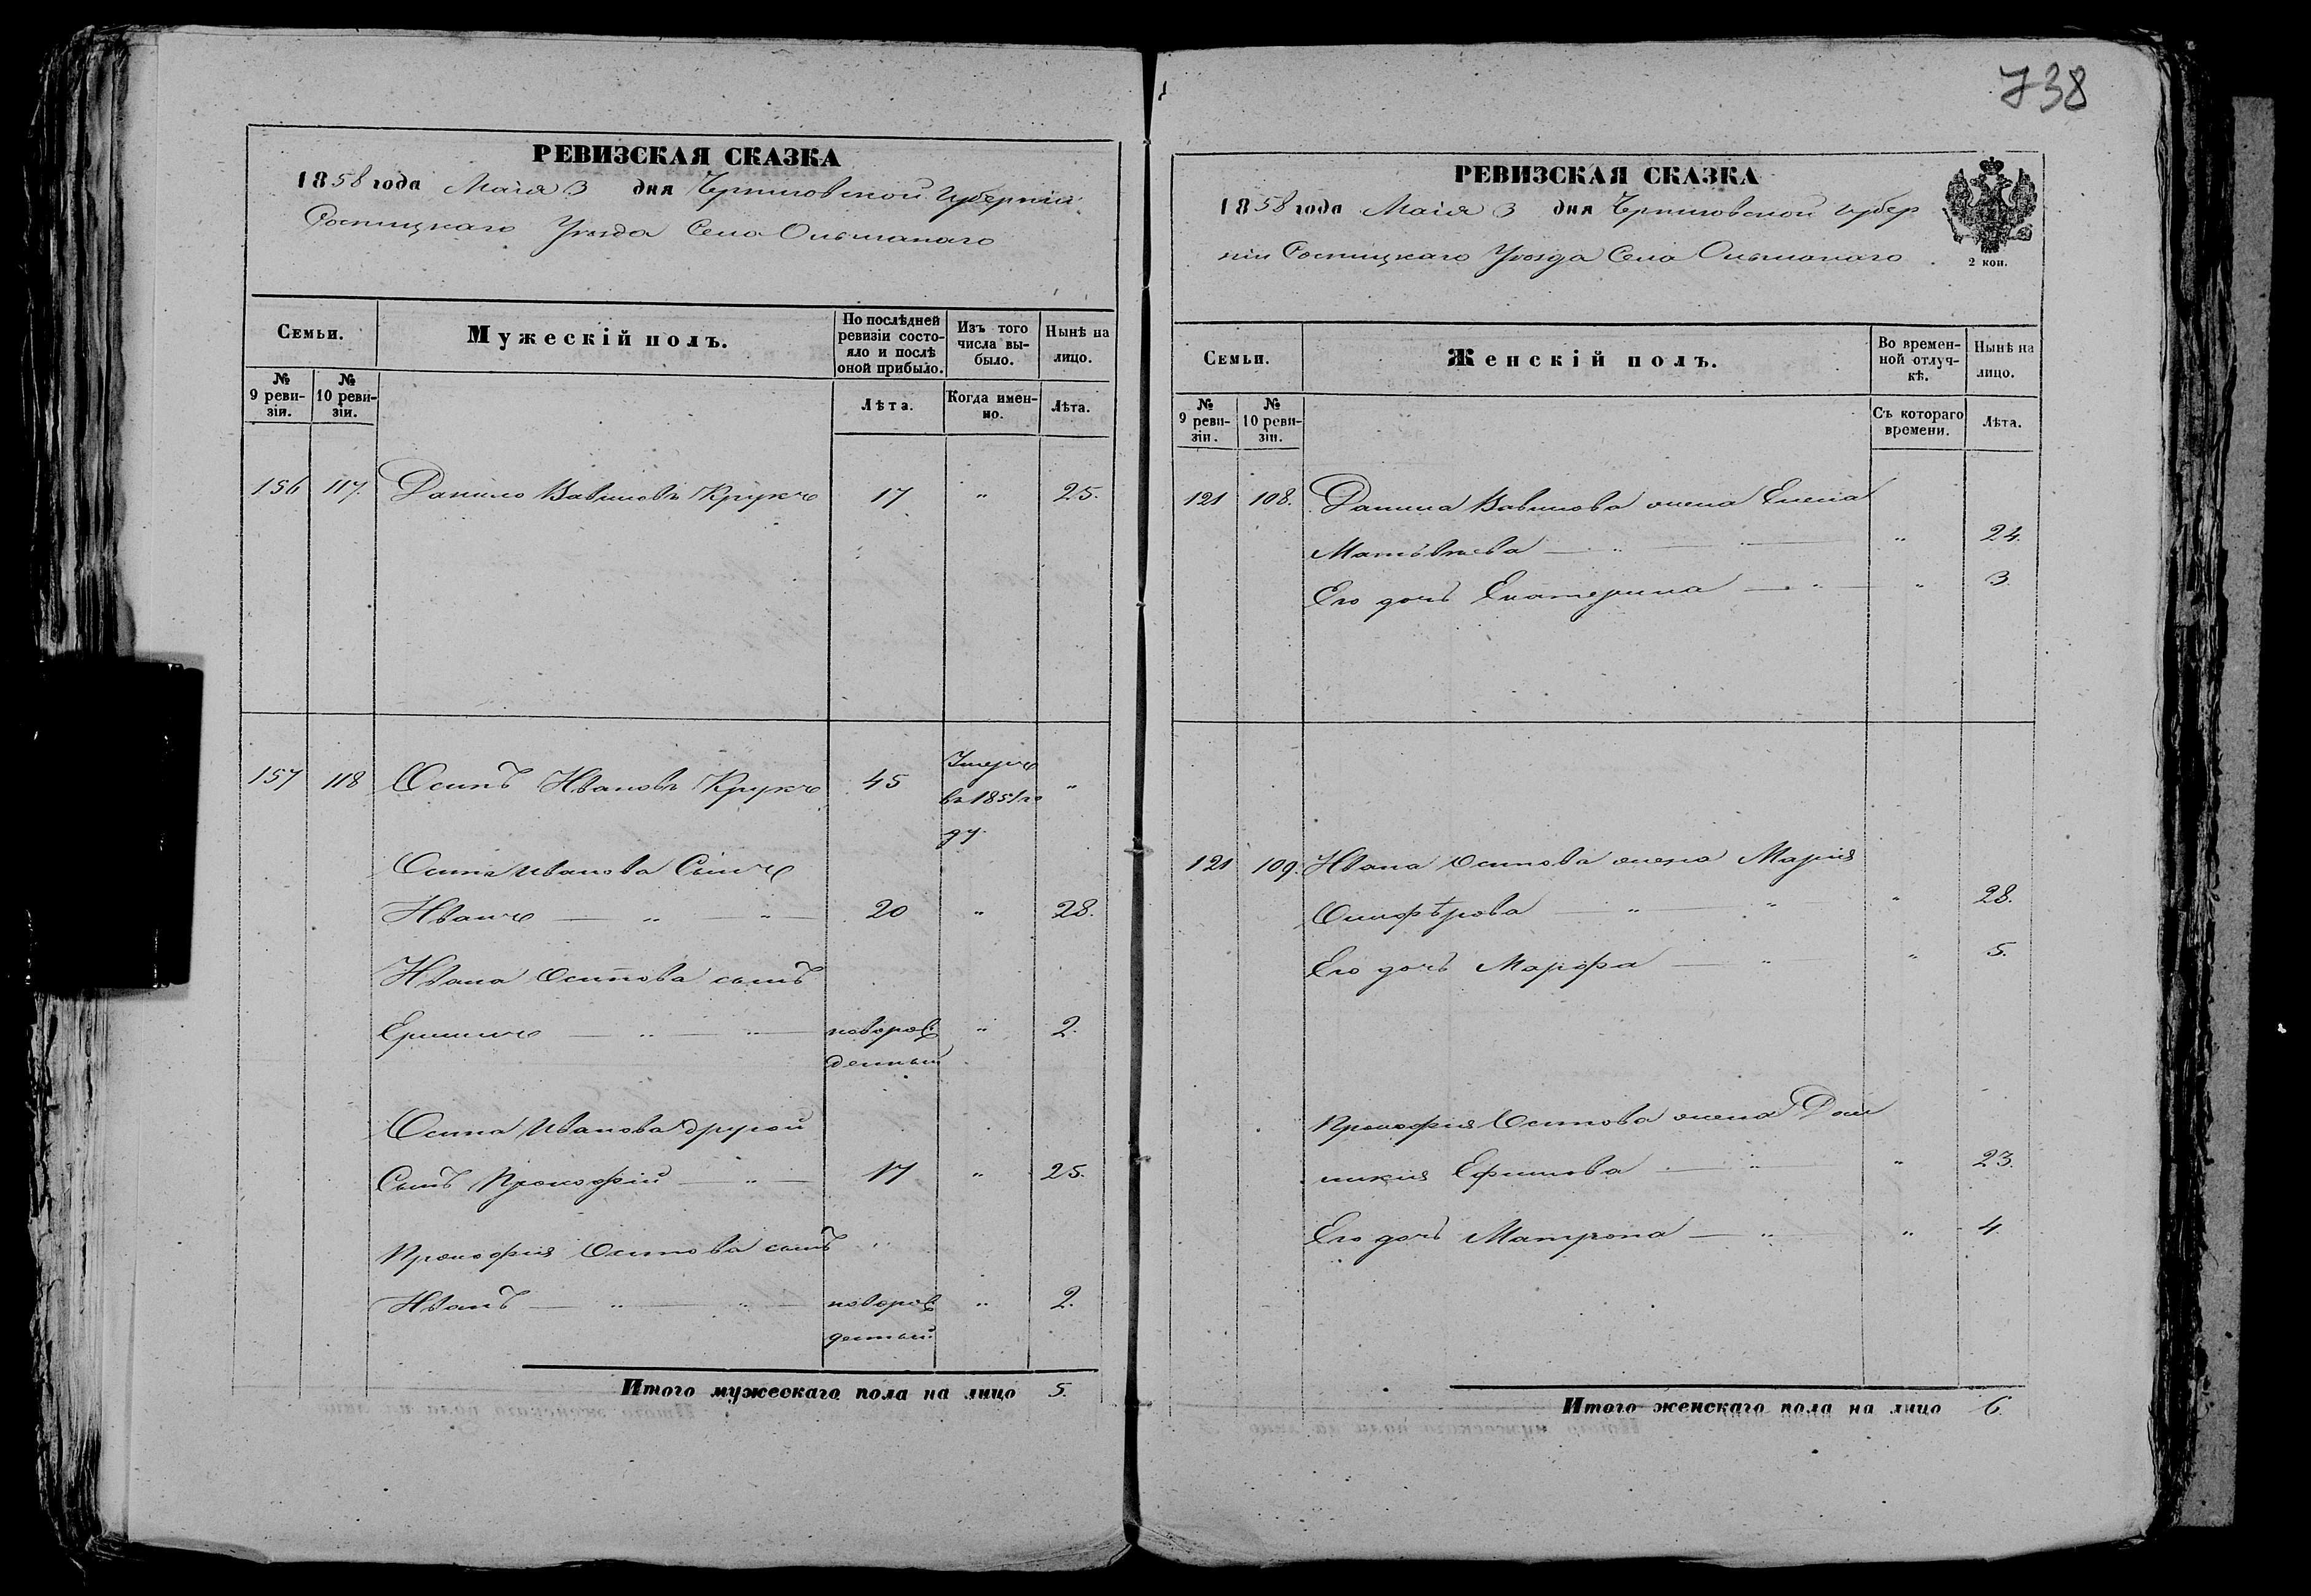 738
РЕВИЗСКАЯ СКАЗКА
1858 года Маія 3 дня Черниговской Губерніи
Сосницкаго Уѣзда Села Ольшанаго
Семьи.
Мужескій полъ.
По послѣдней ревизіи состояло и послѣ оной прибыло.
Изъ того числа выбыло.
Нынѣ на лицо.
№ 9 ревизіи.
№ 10 ревизіи.
Лѣта.
Когда именно.
Лѣта.
156 117. Данило Вавиловъ Крукъ 17 " 25.
157 118 Осипъ Ивановъ Крукъ 45 Умеръ въ 1851 году "
Осипа Иванова Сынъ
Иванъ — " — " — 20 " 28.
Ивана Осипова сынъ
новорож " 2.
денный
Осипа Иванова другой
Сынъ Прокофій — " — 17 " 25.
Прокофія Осипова сынъ
Иванъ — " — " — новорож " 2.
денный
Итого мужескаго пола на лицо 5.
РЕВИЗСКАЯ СКАЗКА
1858 года Маія 3 дня Черниговской Губер
ніи Сосницкаго Уѣзда Села Ольшанаго
2 коп.
Семьи.
Женскій полъ.
Во временной отлучкѣ.
Нынѣ на лицо.
№ 9 ревизіи.
№ 10 ревизіи.
Съ котораго времени.
Лѣта.
121 108. Данила Вавилова жена Елена
Матвѣева — " — " 24.
Его дочь Екатерина — " — " 3.
121 109. Ивана Осипова жена Марія
— " — " — " 28.
Его дочь Марфа — " — " 5.
Прокофія Осипова жена Дом
никія Ефимова — " — " 23.
Его дочь Матрона — " — " 4.
Итого женскаго пола на лицо 6.